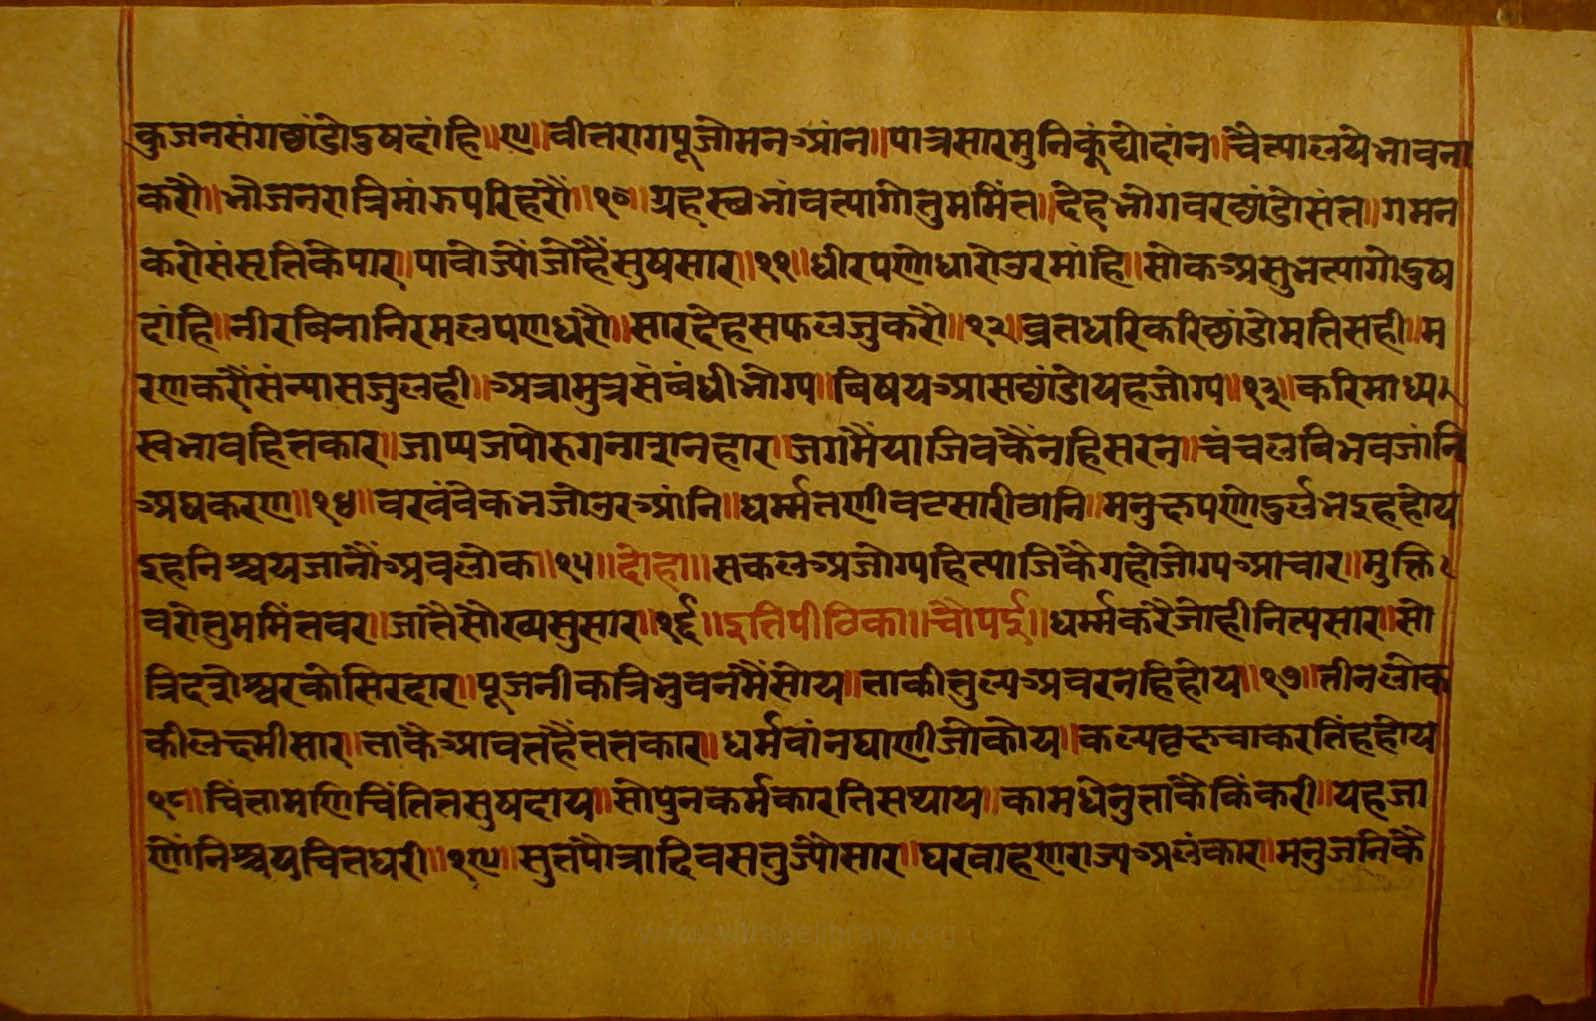 कुजनसंगछांडोदुषदांहि॥९॥वीतरागपूजोमनआंन॥पात्रसारमुनिकूंद्योदांन॥चैत्यालयेभावना
करौ॥भोजनरात्रिमांझपरिहरौ॥१०॥ग्रहस्छभांवत्यागोतुममिंत॥देहभोगवरछांडोसंत॥गमन
करोसंसृतिकेपार॥पावोज्योंजोहैंसुषसार॥११॥धीरपणोधारोउरमांहि॥सोकअसुभत्यागोदुष
दांहि॥नीरबिनानिरमलपणधरौ॥सारदेहसफलजुकरौ॥१२॥व्रतधरिकरिछांडोमतिसही॥म
रणकरौंसंन्यासजुलही॥अत्रामुत्रसंबंधीभोग्य॥बिषयआसछांडोयहजोग्य॥१३॥करिमाध्य
स्वभावहितकार॥जाप्यजपोरुगनाशनहार॥जगमैंयाजिवकैंनहिसरन॥चंचलबिभवजांनि
अघकरण॥१४॥वरवंवेकभजोउरआंनि॥धर्म्मतणीवटसारीवानि॥मनुक्षपणोदुर्लभइहहोय
इहनिश्चयजानौंअवलोक॥१५॥दोहा॥सकलअजोग्यहित्याजिकैगहोजोग्यआचार॥मुक्ति
वरोतुममिंतवर॥जांतैसौख्यसुसार॥१६॥इतिपीठिका॥चौपई॥धर्म्मकरैजोहीनित्यसार॥सो
त्रिदशेश्वरकोसिरदार॥पूजनीकत्रिभुवनमैंसोय॥ताकीतुल्यअवरनहिहोय॥१७॥तीनलोक
कीलक्ष्मीसार॥ताकैआवतहैंततकार॥धर्मवांनप्राणीजोकोय॥कल्पवृक्षवाकरतिंहहोय
१८॥चिंतामणिचिंतितसुषदाय॥सोपुनकर्मकारतिसथाय॥कामधेनुताकैकिंकरी॥यहजा
णोंनिश्चयचितधरी॥१९॥सुतपौत्रादिवसतुज्यौसार॥घरवाहणराज्यअलंकार॥मनुजनिकै
www.villagelibrary.org